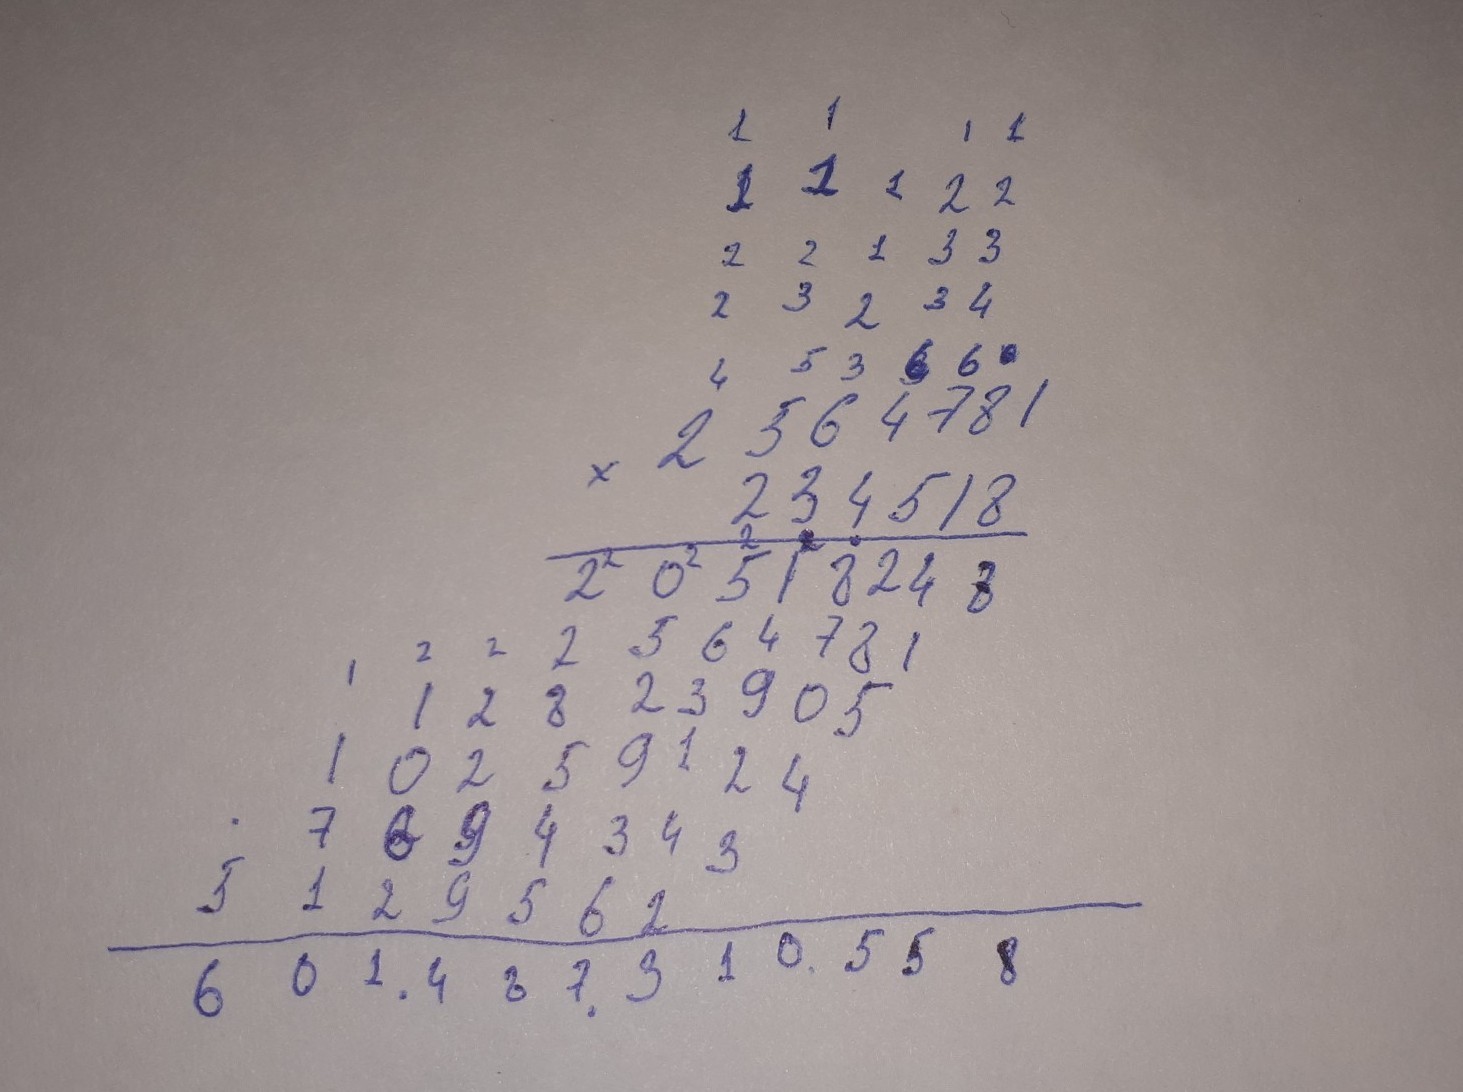 1 1 1 1
1 1 1 2 2
2 2 1 3 3
2 3 2 3 4
4 5 3 6 6
2 5 6 4 7 8 1
x 2 3 4 5 1 8
2 2 2 2
2 0 5 1 8 2 4 8
1 2 2 2 5 6 4 7 8 1
1 2 8 2 3 9 0 5
1 0 2 5 9 1 2 4
. 7 6 9 4 3 4 3
5 1 2 9 5 6 2
6 0 1 . 4 8 7 . 3 1 0 . 5 5 8